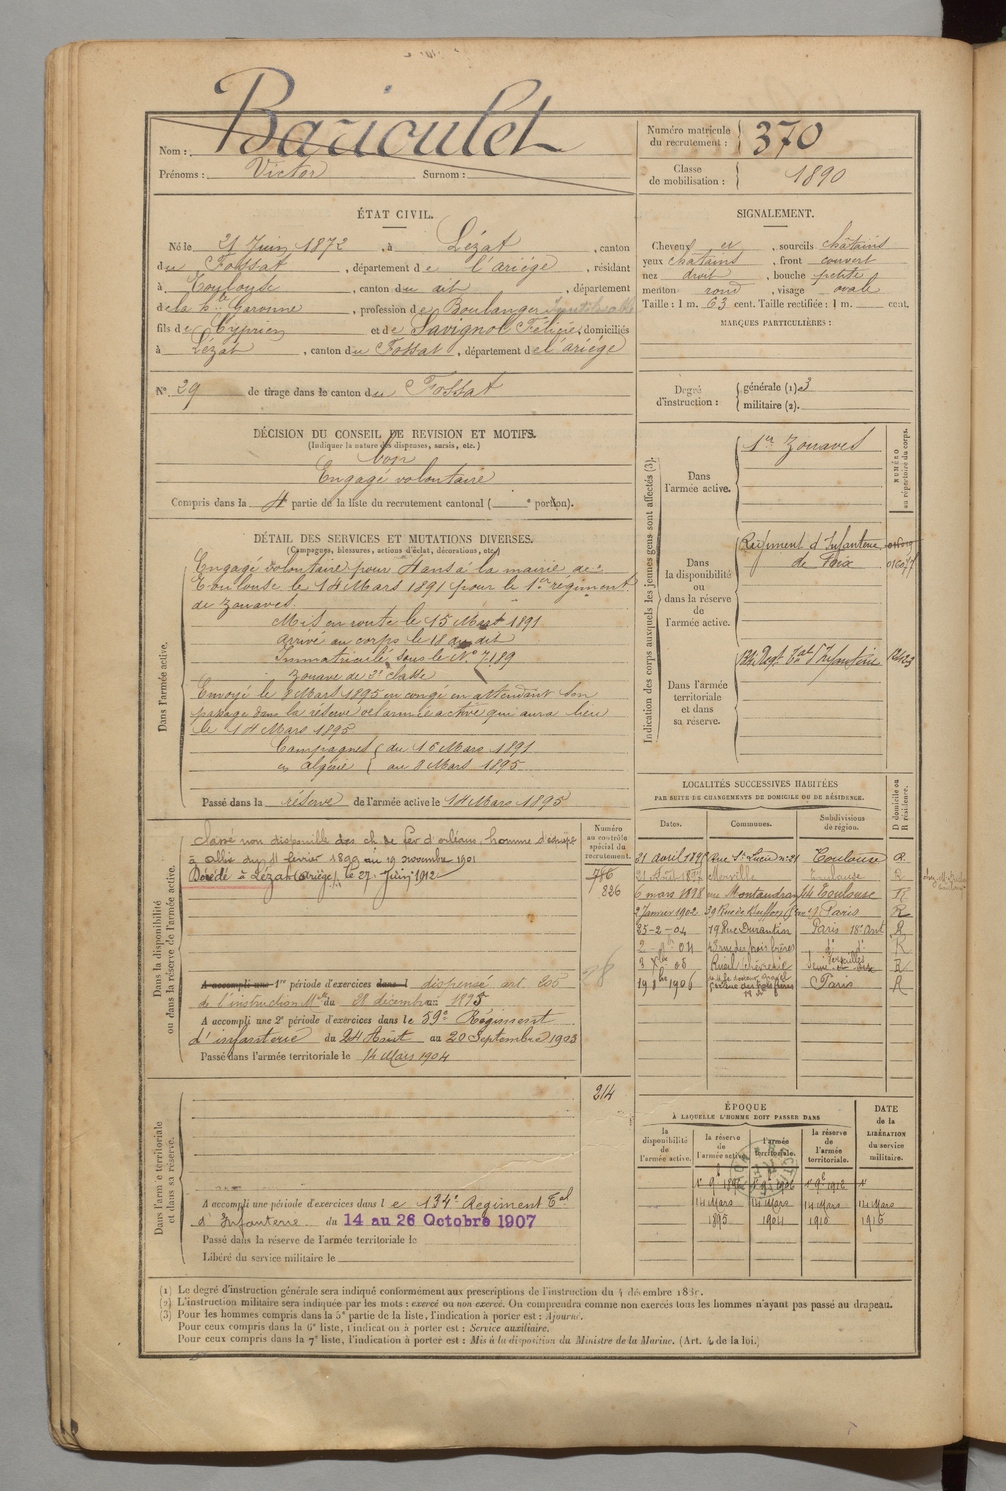 Nom : Baricoulet
Prénoms : Victor Surnom :
Numéro matricule du recrutement : 370
Classe de mobilisation : 1890
ÉTAT CIVIL.
Né le 21 Juin 1872, à Lézat, canton
du Fossat, département de l'ariège, résidant
à Toulouse, canton du dit, département
de la hte Garonne, profession de Boulanger
fils de Cyprien et de Savignol Félicie, domiciliés
à Lézat, canton du Fossat, département de l'ariège
N° 29 de tirage dans le canton du Fossat
SIGNALEMENT.
Cheveux et, sourcils châtains
yeux châtains, front couvert
nez droit, bouche petite
menton rond, visage ovale
Taille : 1 m. 63 cent. Taille rectifiée : 1 m. cent.
MARQUES PARTICULIÈRES :
Degré d'instruction : générale (1) 3
militaire (2).
DÉCISION DU CONSEIL DE REVISION ET MOTIFS.
(Indiquer la nature des dispenses, sursis, etc.)
bon
Engagé volontaire
Compris dans la 4e partie de la liste du recrutement cantonal ( e portion).
DÉTAIL DES SERVICES ET MUTATIONS DIVERSES.
(Campagnes, blessures, actions d'éclat, décorations, etc.)
Dans l'armée active.
Engagé volontaire pour 4 ans à la mairie de
Toulouse le 14 Mars 1891 pour le 1er régiment
de zouaves.
Mis en route le 15 Mars 1891
arrivé au corps le 18 du dit
Immatriculé sous le N° 7189
zouave de 2e classe
Envoyé le 8 Mars 1895 en congé en attendant son
passage dans la réserve de l'armée active qui aura lieu
le 14 Mars 1895
Campagnes du 15 Mars 1891
en Algérie au 8 Mars 1895
Passé dans la réserve de l'armée active le 14 Mars 1895
Indication des corps auxquels les jeunes gens sont affectés (3).
NUMÉRO au répertoire du corps.
Dans l'armée active.
1er Zouaves
Dans la disponibilité ou dans la réserve de l'armée active.
Régiment d'Infanterie
de Foix
Dans l'armée territoriale et dans sa réserve.
134e Regt Tal d'Infanterie
LOCALITÉS SUCCESSIVES HABITÉES
PAR SUITE DE CHANGEMENTS DE DOMICILE OU DE RÉSIDENCE.
D domicile ou R résidence.
Dates. Communes. Subdivisions de région.
21 avril 1895 Toulouse R
21 Août 1897 Merville Toulouse R
6 mars 1898 rue Montaudran Toulouse R
2 Janvier 1902 39 Rue de Buffon Paris R
25-2-04 79 Rue Durantin Paris 18e Arrt R
43 rue des trois frères d° d° R
R
1906 Paris R
Dans la disponibilité ou dans la réserve de l'armée active.
Numéro au contrôle spécial du recrutement.
Classé non disponible des ch de fer d'orléans homme d'équipe
à du 11 février 1899 au 19 novembre 1901
Décédé à Lézat (Ariège), le 27 Juin 1912
746
226
A accompli une 1re période d'exercices dans l dispensé art. 206
de l'instruction Mlle du 28 décembre 1895
A accompli une 2e période d'exercices dans le 59e Régiment
d'infanterie du 24 Août au 20 Septembre 1903
Passé dans l'armée territoriale le 14 Mars 1904
Dans l'armée territoriale et dans sa réserve.
214
A accompli une période d'exercices dans le 134e Regiment Tal
d'Infanterie du 14 au 26 Octobre 1907
Passé dans la réserve de l'armée territoriale le
Libéré du service militaire le
ÉPOQUE
À LAQUELLE L'HOMME DOIT PASSER DANS
DATE de la LIBÉRATION du service militaire.
la disponibilité de l'armée active.
la réserve de l'armée active.
l'armée territoriale.
la réserve de l'armée territoriale.
14 Mars 14 Mars 14 Mars 14 Mars
1895 1904 1910 1916
(1) Le degré d'instruction générale sera indiqué conformément aux prescriptions de l'instruction du 4 décembre 1889.
(2) L'instruction militaire sera indiquée par les mots : exercé ou non exercé. On comprendra comme non exercés tous les hommes n'ayant pas passé au drapeau.
(3) Pour les hommes compris dans la 5e partie de la liste, l'indication à porter est : Ajourné.
Pour ceux compris dans la 6e liste, l'indication à porter est : Service auxiliaire.
Pour ceux compris dans la 7e liste, l'indication à porter est : Mis à la disposition du Ministre de la Marine. (Art. 4 de la loi.)